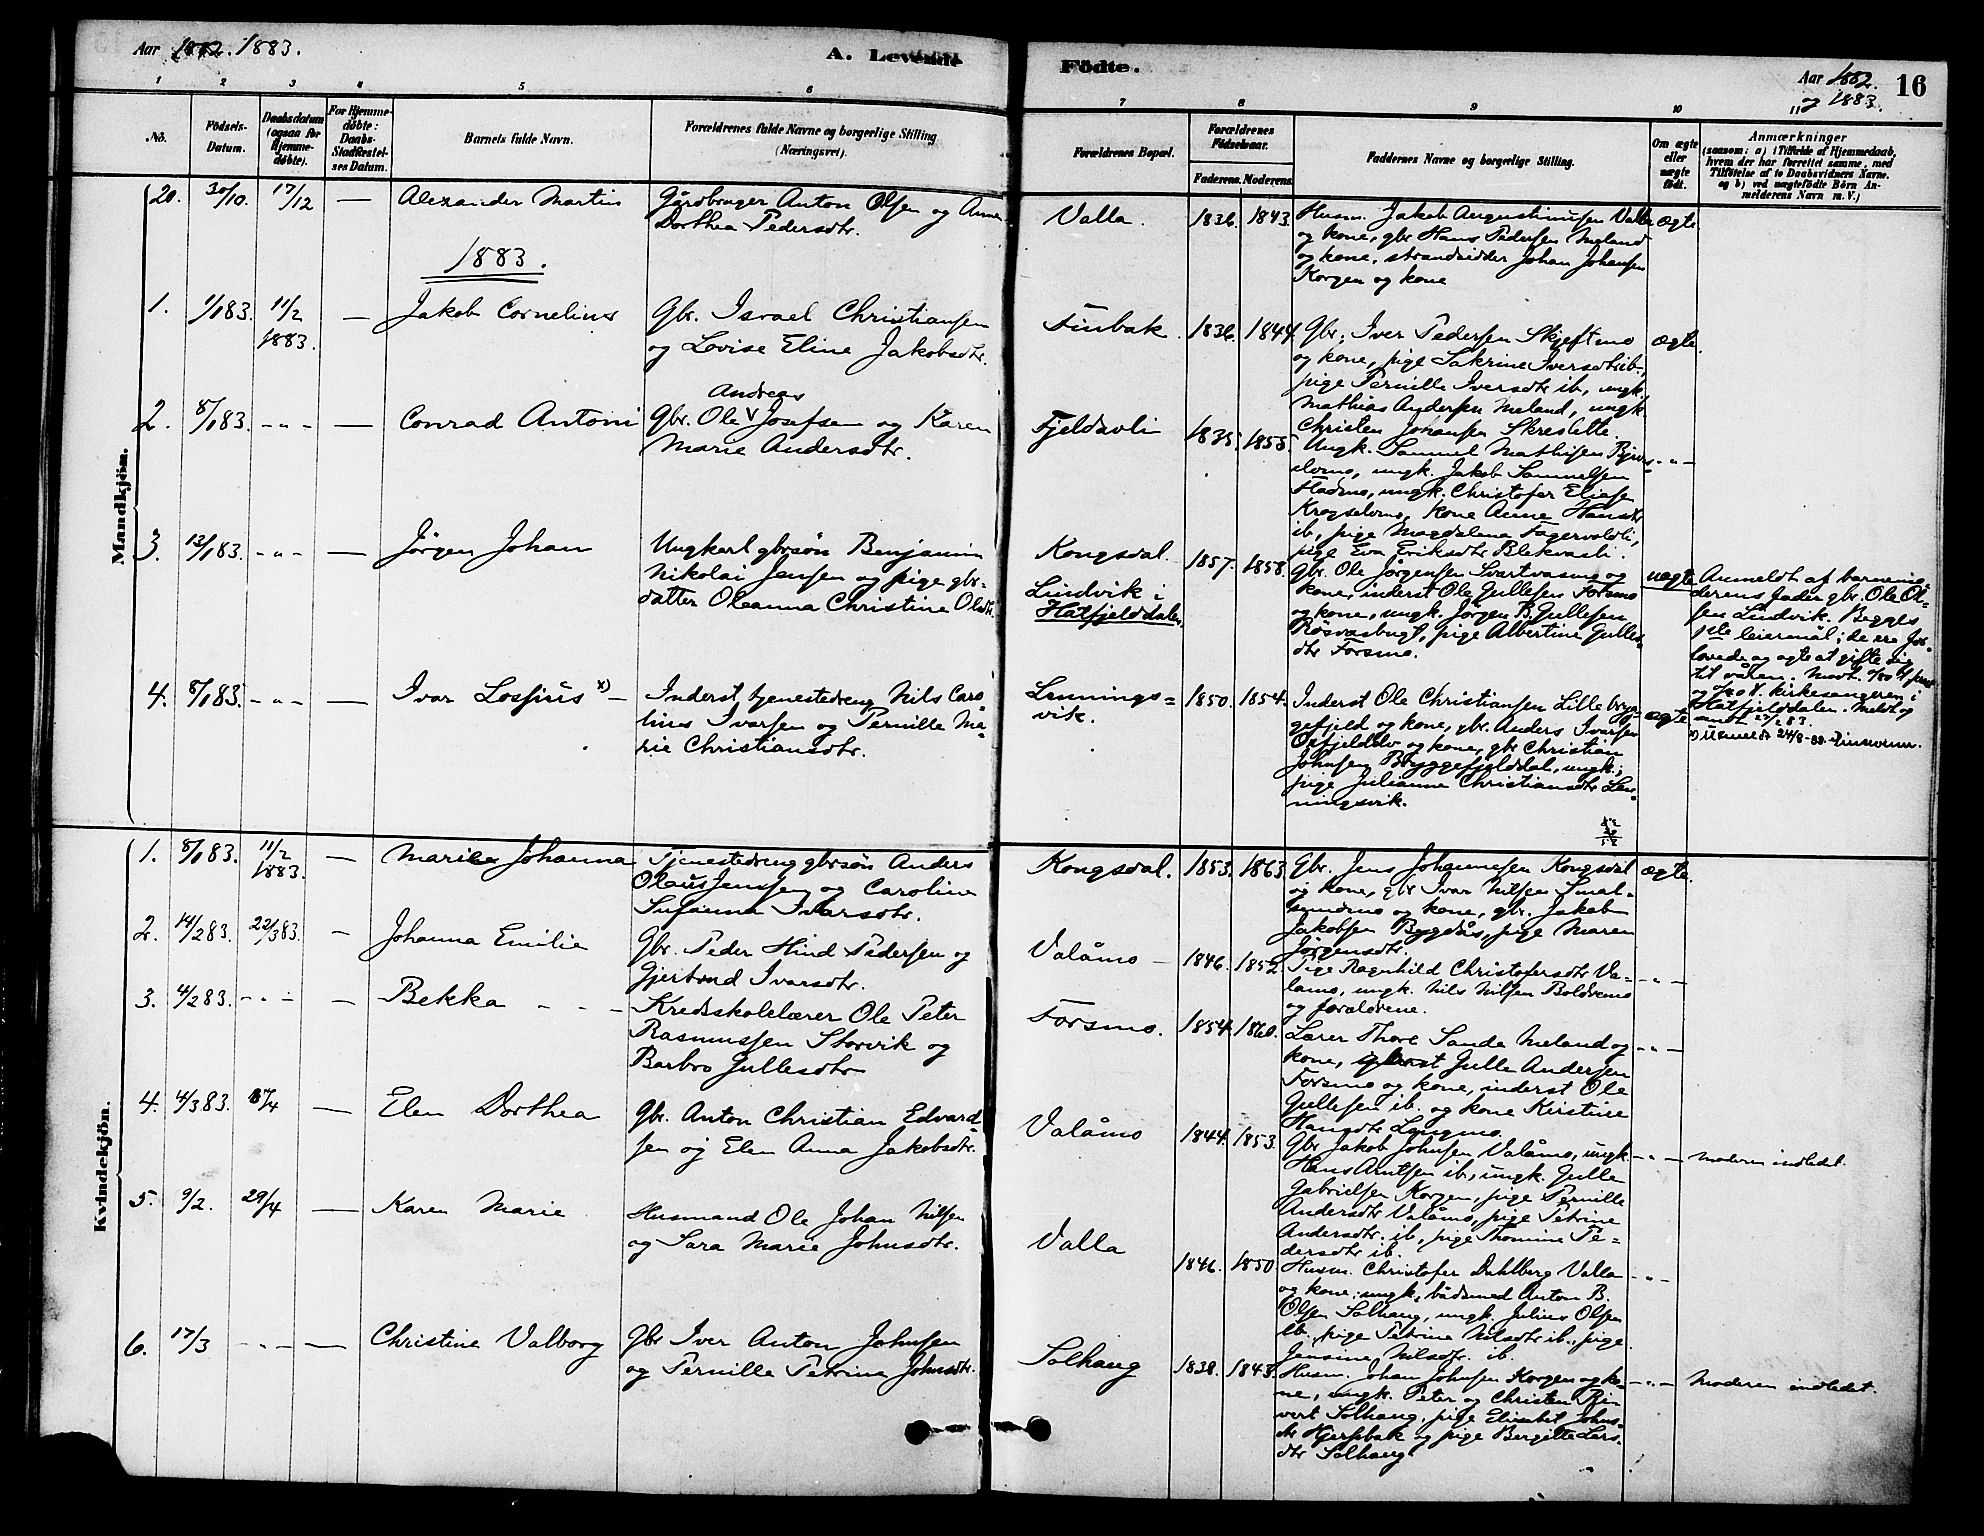 Aar 1882. 1883.
A. Levende
Födte.
Aar 1882.
og 1883.
16
1 2 3 4 5 6 7 8 9 10 11
Nô.
Födsels-
Datum.
Daabsdatum
(ogsaa for
Hjemme-
döbte).
For Hjemme-
döbte:
Daabs-
Stadfæstel-
ses Datum.
Barnets fulde Navn.
Forældrenes fulde Navne og borgerlige Stilling
(Næringsvei).
Forældrenes Bopæl.
Forældrenes
Födselsaar.
Faderens. Moderens.
Faddernes Navne og borgerlige Stilling.
Om ægte
eller
uægte
födt.
Anmærkninger
(saasom: a) i Tilfælde af Hjemmedaab,
hvem der har forrettet samme, med
Tilföielse af to Daabsvidners Navne,
og b) ved uægtefödte Börn An-
melderens Navn m. V.)
Mandkjön.
20. 30/10. 17/12 — Alexander Martin
Gårdbruger Anton Olsen og Anne
Dorthea Pedersdtr.
Valla. 1836. 1843.
Husm. Jakob Augustinusen Valla
og kone, gbr. Hans Pedersen Meland
og kone, strandsidder Johan Johansen
Korgen og kone
ægte
1883.
1. 1/1 83. 11/2 1883. — Jakob Cornelius
Gbr. Israel Christiansen
og Lovise Eline Jakobsdtr.
Finbak. 1836. 1844.
Gbr. Iver Pedersen Skjeftmo
og kone, pige Sakrine Iversdtr ib.,
pige Pernille Iversdtr ib., ungk.
Mathias Andersen Meland, ungk.
Christen Johansen Skreslette.
ægte.
2. 8/1 83. - " - — Conrad Antoni
Andreas
Gbr. Ole V Josefsen og Karen
Marie Andersdtr.
Fjeldavli 1835. 1855.
Ungk. Samuel Mathisen Bjur-
elvmo, ungk. Jakob Samuelsen
Stadmo, ungk. Christofer Eliasen
Krogselvmo, kone Anne Hansdtr
ib, pige Magdalena Fagervoldli,
pige Eva Eriksdtr Blekvasli.
- " -
3. 13/1 83. - " - — Jørgen Johan
Ungkarl gbrsøn Benjamin
Nikolai Jensen og pige gbr-
datter Oleanna Christine Olsdtr.
Kongsdal
Lindvik i
Hatfjelddalen.
1857. 1858.
Gbr. Ole Jørgensen Svartvasmo og
kone, inderst Ole Gullesen Forsmo
og kone, ungk. Jørgen B. Gullesen
Røsvasbugt, pige Albertine Gulles-
dtr Forsmo.
uægte
Anmeldt af barnemo-
derens fader gbr. Ole Ol-
sen Lindvik. Begges
1ste leiermål; de ere for-
lovede og agte at gifte sig
til våren.
kirkesangeren i
Hatfjelddalen. Meldt og
4. 8/1 83. - " - — Ivar Lossius x) —
Inderst tjenestedreng Nils Caro-
lius Ivarsen og Pernille Ma-
rie Christiansdtr.
Lennings-
vik.
1850. 1854.
Inderst Ole Christiansen Lille bryg-
gefjeld og kone, gbr. Anders Ivarsen
Oxfjelddl og kone, gbr Christian
Johnsen Bryggefjelddal, ungk.;
pige Julianna Christiansdtr Len-
ningsvik.
ægte
x) Utmeldt 24/8-88
Kvindekjön.
1. 8/1 83. 11/2 1883. — Marie Johanna
Tjenestedreng gbrsøn Anders
Olaus Jenssen og Caroline
Susanna Ivarsdtr.
Kongsdal. 1853. 1863.
Gbr. Jens Johannesen Kongsdal
og kone, gbr Ivar Nilsen Smal-
sundmo og kone, gbr. Jakob
Jakobsen Bygdås, pige Maren
Jørgensdtr.
ægte.
2. 14/2 83. 22/3 83. — Johanna Emilie
Gbr. Peder Hind Pedersen og
Gjertrud Ivarsdtr.
Valåmo — 1846. 1852
Pige Ragnhild Christofersdtr Va-
låmo, ungk. Nils Nilsen Boldremo
og forældrene.
- " -
3. 4/2 83. - " - — Bekka
Kredsskolelærer Ole Peter
Rasmussen Storvik og
Barbro Gullesdtr
Forsmo. 1854. 1860.
Lærer Thore Sanda Meland og
kone, Gulle Andersen
Forsmo og kone, inderst Ole
Gullesen ib. og kone Kirstine
Hansdtr Langmo.
- " -
4. 4/3 83. 8/4 — Elen Dorthea
Gbr. Anton Christian Edvard-
sen og Elen Anna Jakobsdtr.
Valåmo 1844. 1853.
Gbr Jakob Johnsen Valåmo, ungk.
Hans Arntsen ib., ungk. Gulle
Gabrielsen Korgen, pige Pernille
Andersdtr Valåmo, pige Petrine
Andersdtr. ib., pige Thomine Pe-
dersdtr ib.
- " -
Moderen indledet.
5. 9/2. 29/4 — Karen Marie
Husmand Ole Johan Nilsen
og Sara Marie Johnsdtr.
Valla 1846. 1850
Husm. Christofer Dahlberg Valla
og kone, ungk. bådsmed Anton B.
Olsen Solhaug, ungk. Julius Olsen
ib., pige Petrine Nilsdtr ib., pige
Jensine Nilsdtr. ib.
- " -
6. 17/3 - " - — Christine Valborg
Gbr Iver Anton Johnsen
og Pernille Petrina Johnsdtr.
Solhaug 1838. 1843.
Husm. Johan Johnsen Korgen og ko-
ne, ungk. Peter og Christen
Solhaug, pige Elisabet Johns-
dtr Hjerpbak og pige Bergitte Lars-
dtr Solhaug
- " -
Moderen indledet.